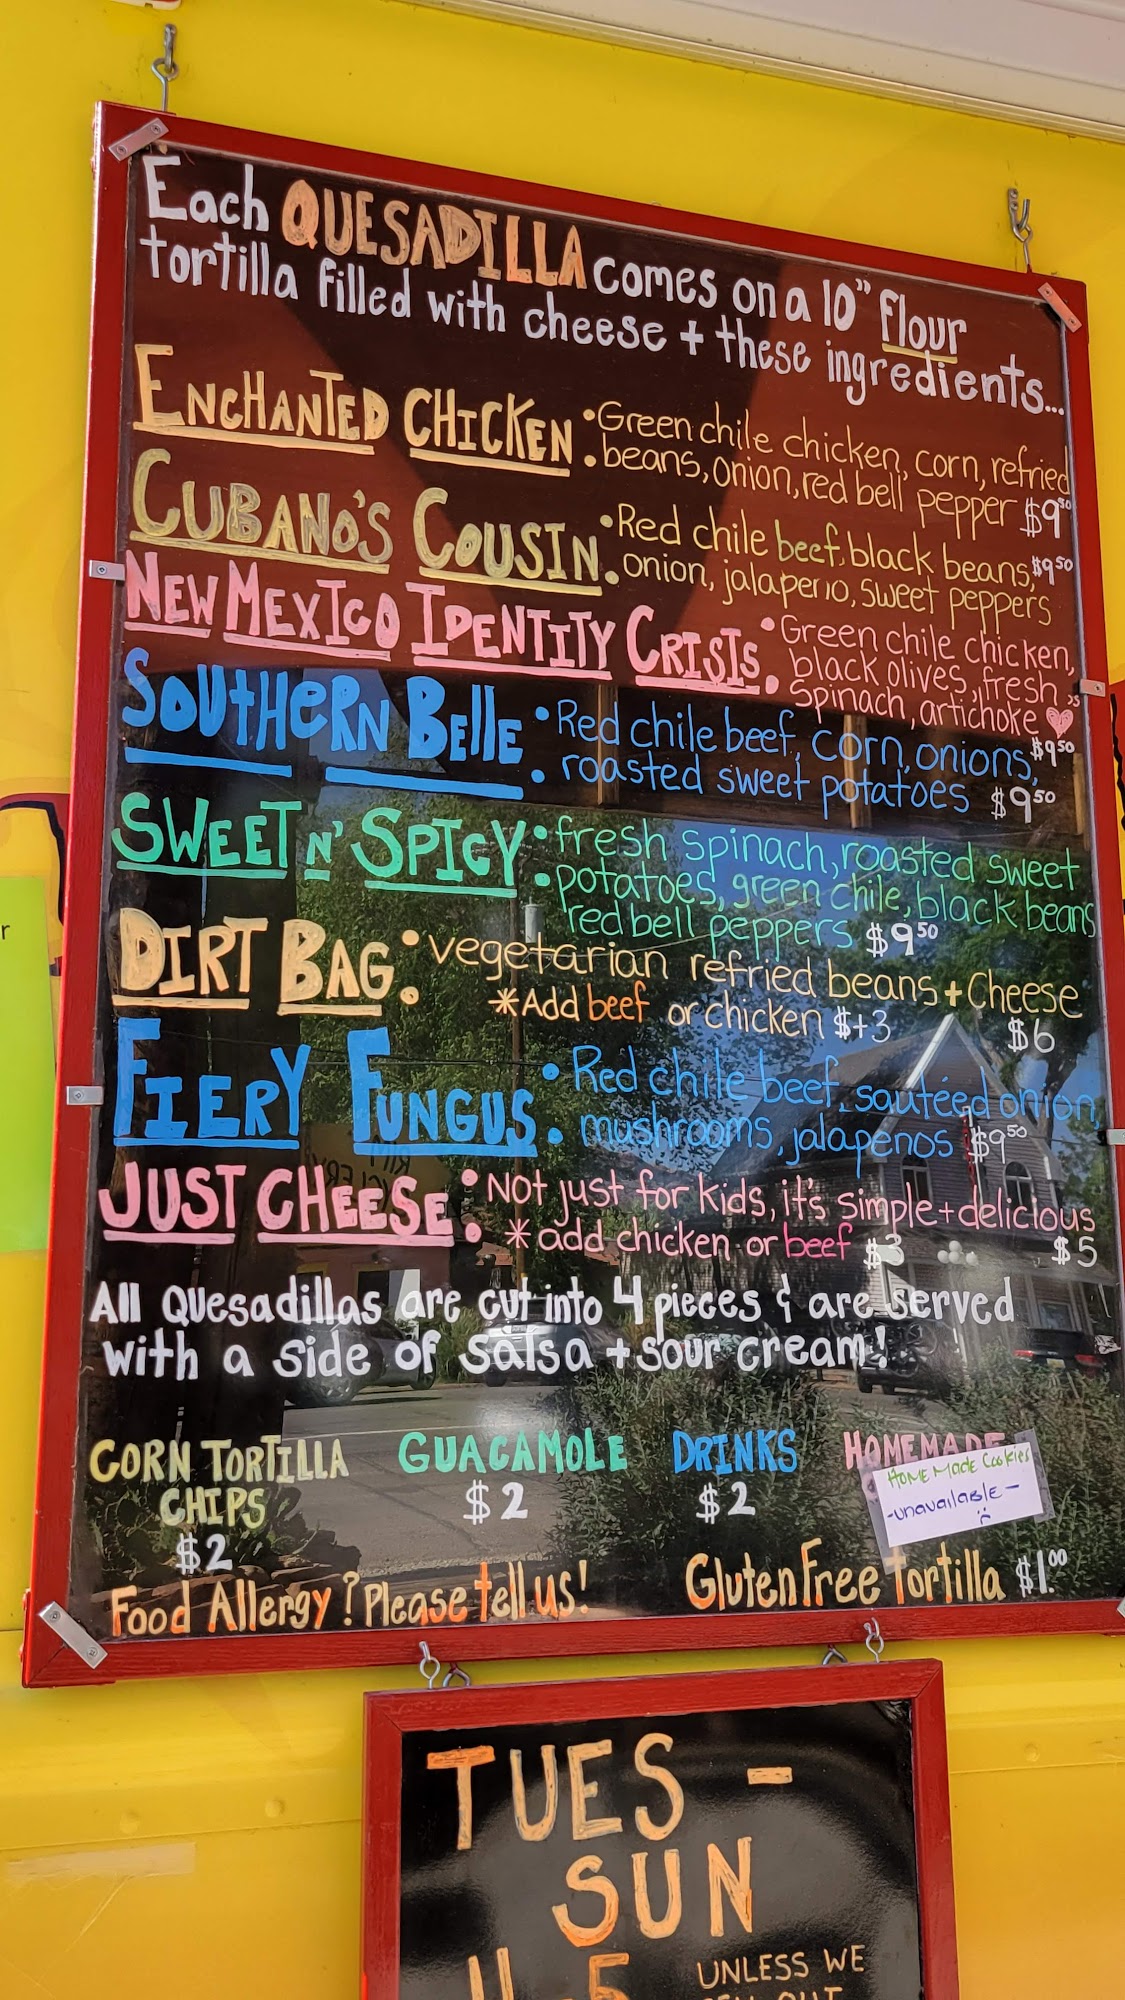 Each QUESADILLA comes on a 10" flour
tortilla filled with cheese + these ingredients...
ENCHANTED CHICKEN: Green chile chicken, corn, refried
beans, onion, red bell pepper $9.50
CUBANO'S COUSIN: Red chile beef, black beans, $9.50
onion, jalapeno, sweet peppers
NEW MEXICO IDENTITY CRISIS: Green chile chicken,
black olives, fresh
spinach, artichoke ♥ $9.50
SOUTHERN BELLE: Red chile beef, corn, onions,
roasted sweet potatoes $9.50
SWEET N' SPICY: fresh spinach, roasted sweet
potatoes, green chile, black beans
red bell peppers $9.50
DIRT BAG: vegetarian refried beans + Cheese
*Add beef or chicken $+3 $6
FIERY FUNGUS: Red chile beef, sautéed onion,
mushrooms, jalapenos $9.50
JUST CHEESE: Not just for kids, it's simple + delicious
* add chicken or beef $3 $5
All Quesadillas are cut into 4 pieces & are served
with a side of salsa + sour cream!
CORN TORTILLA
CHIPS
$2
GUACAMOLE
$2
DRINKS
$2
HOMEMADE
HOME Made Cookies
-unavailable-
Food Allergy? Please tell us!
Gluten Free Tortilla $1.00
TUES -
SUN
11-5
UNLESS WE
SELL OUT